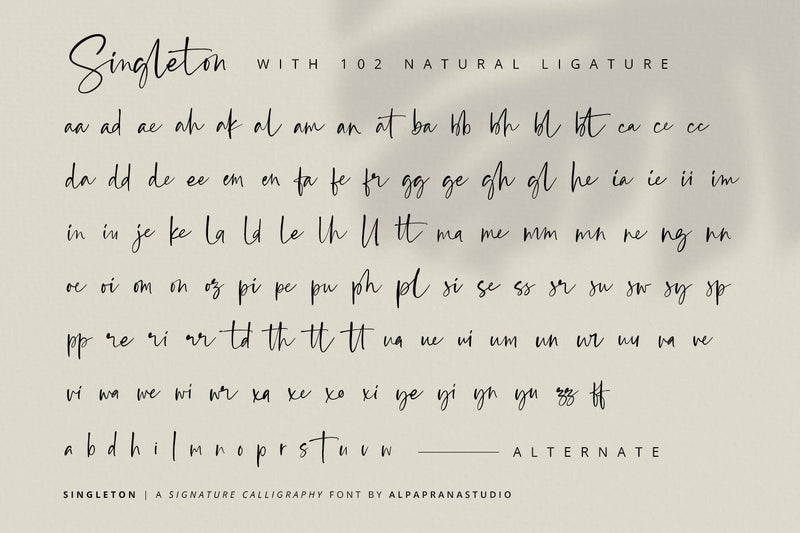 Singleton WITH 102 NATURAL LIGATURE
aa ad ae ah ak al am an at ba bb bh bl bt ca ce cc
da dd de ee em en fa fe fr gg ge gh gl he ia ie ii im
in iu je ke la ld le lh ll tt ma me mm mn ne ng nn
oe oi om on oz pi pe pu ph pl si se ss sr su sw sy sp
pp re ri rr td th tt tt ua ue ui um un ur uu va ve
vi wa we wi wr xa xe xo xi ye yi yn yu zz ff
a b d h i l m n o p r s t u v w ALTERNATE
SINGLETON | A SIGNATURE CALLIGRAPHY FONT BY ALPAPRANASTUDIO